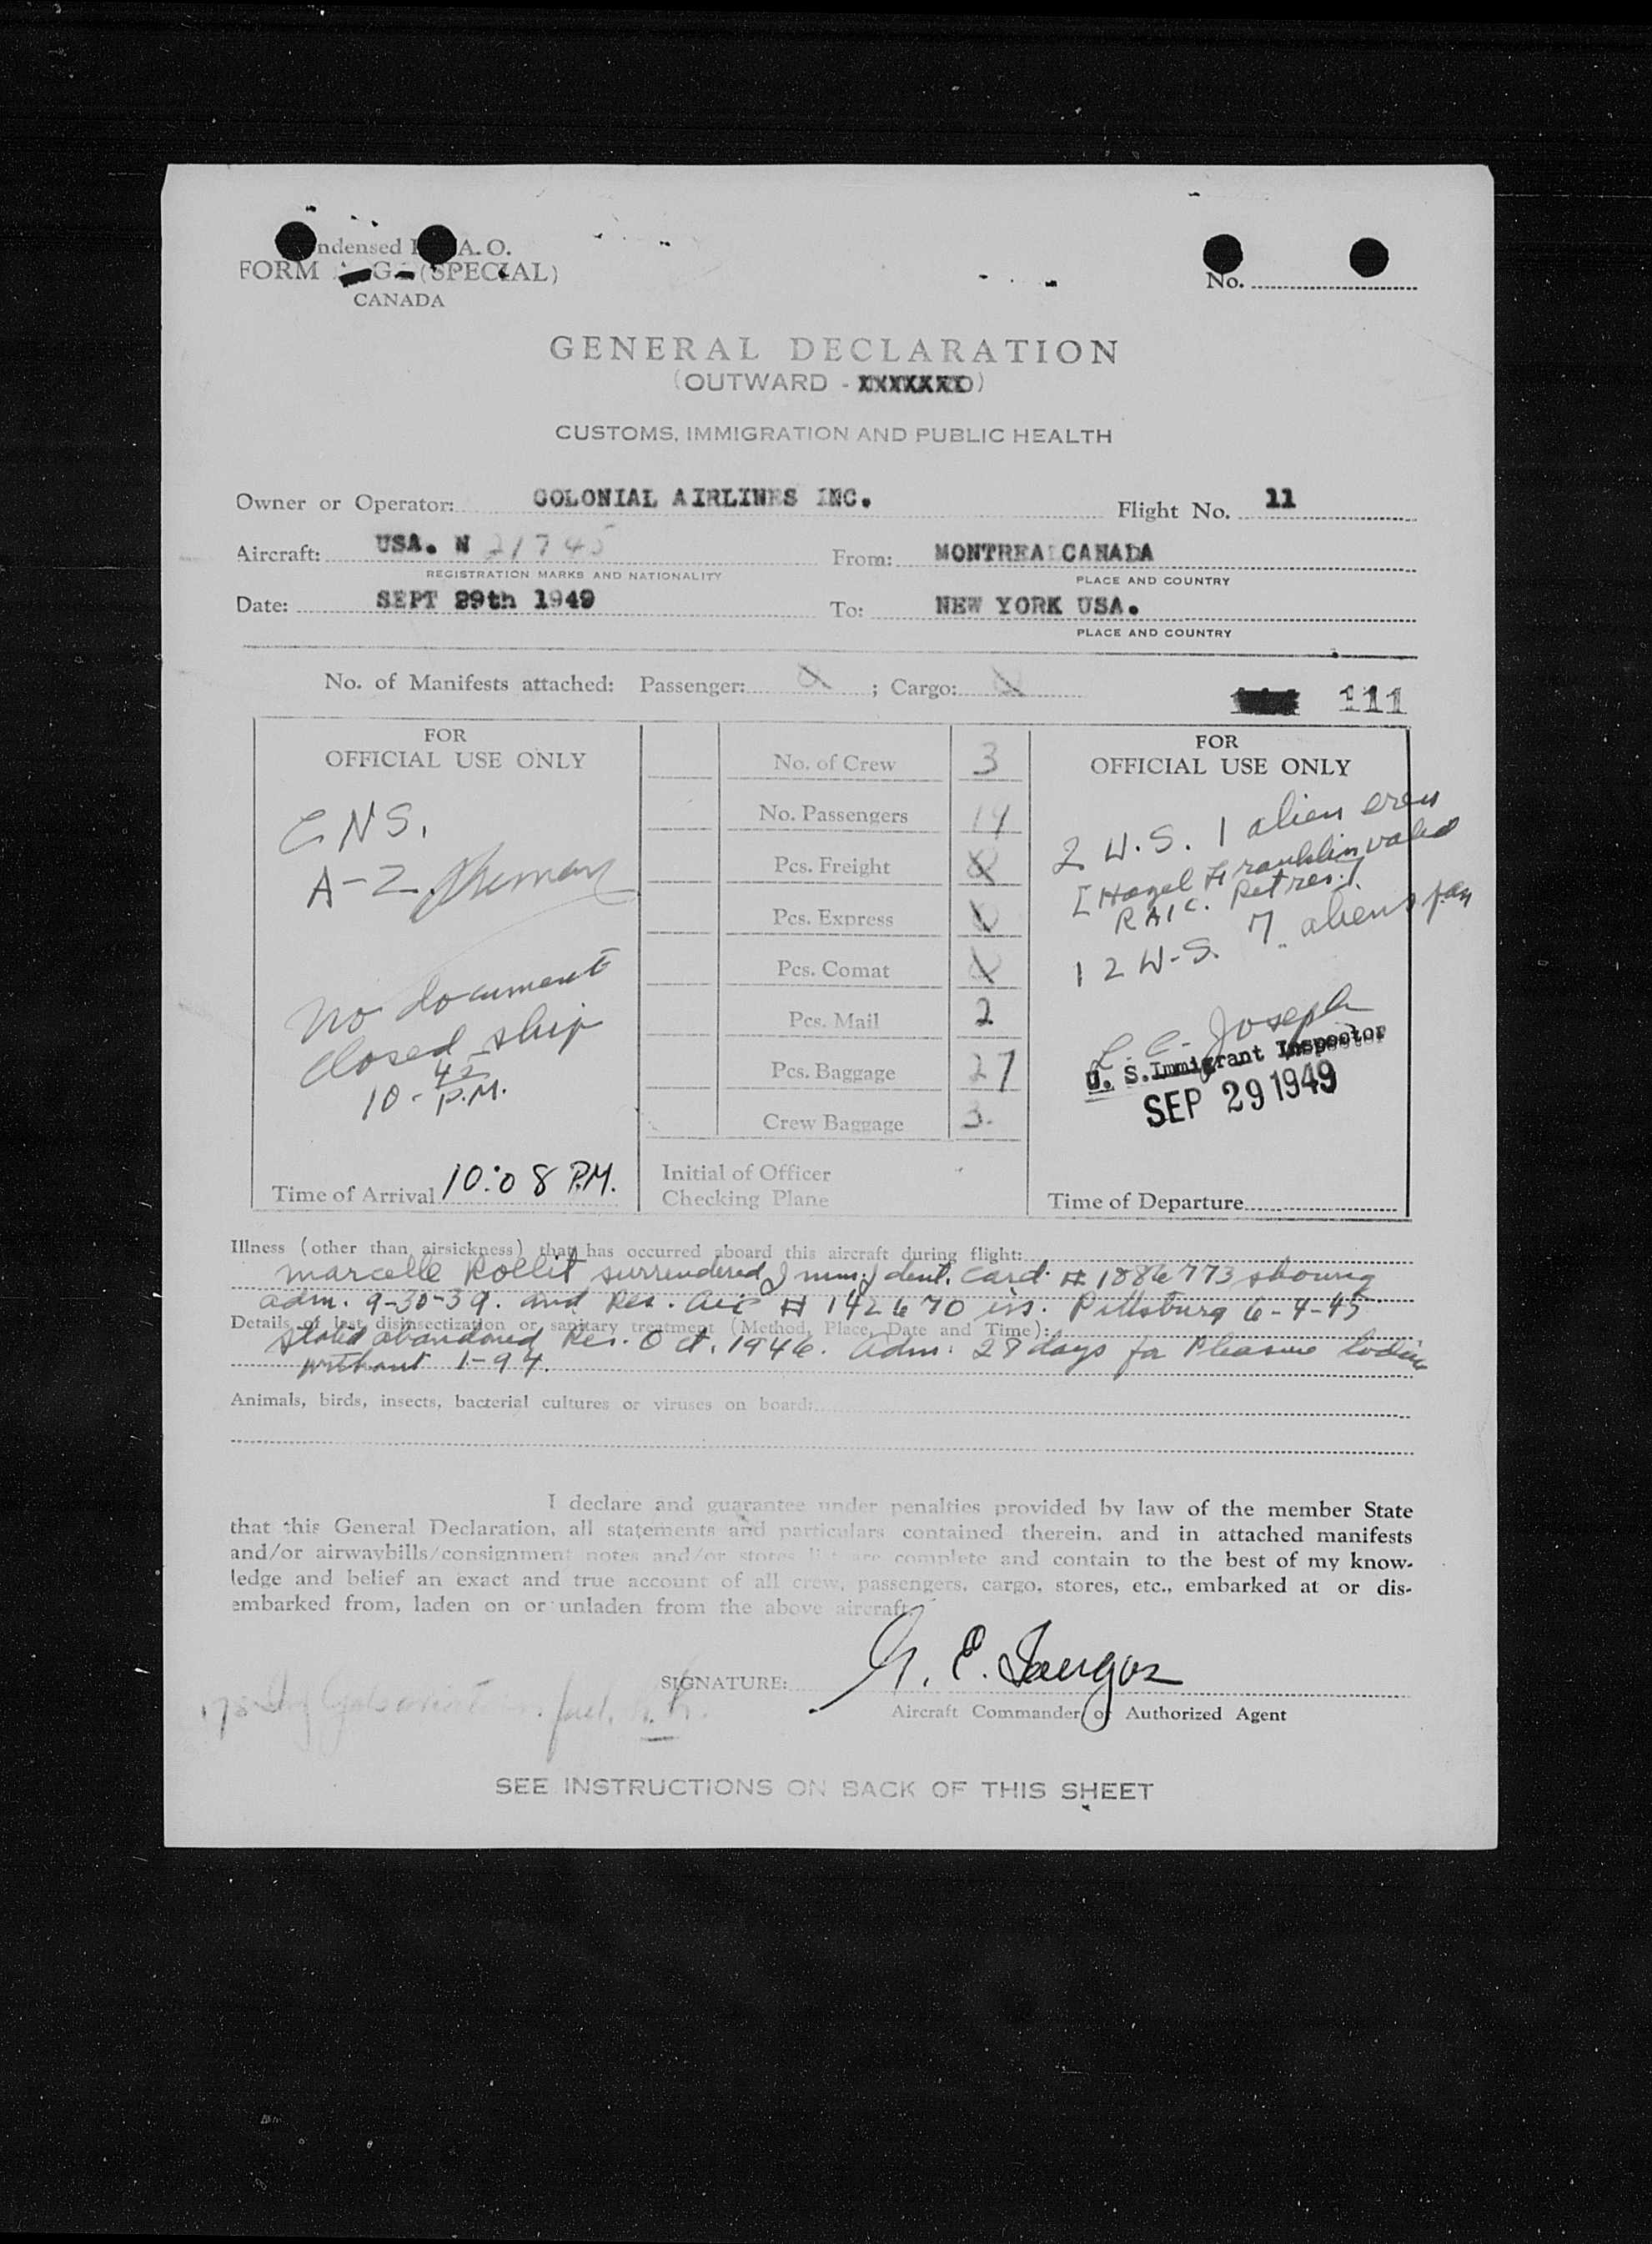 ndensed I A. O.
FORM G (SPECIAL)
CANADA
No.
GENERAL DECLARATION
(OUTWARD - XXXXXXX)
CUSTOMS, IMMIGRATION AND PUBLIC HEALTH
Owner or Operator: COLONIAL AIRLINES INC. Flight No. 11
Aircraft: USA. N 21745 From: MONTREAL CANADA
REGISTRATION MARKS AND NATIONALITY PLACE AND COUNTRY
Date: SEPT 29th 1949 To: NEW YORK USA.
PLACE AND COUNTRY
No. of Manifests attached: Passenger: ; Cargo:
111
FOR
OFFICIAL USE ONLY
C N S.
A-2
No document
closed ship
10-42 P.M.
Time of Arrival 10:08 P.M.
No. of Crew 3
No. Passengers 19
Pcs. Freight
Pcs. Express
Pcs. Comat
Pcs. Mail 2
Pcs. Baggage 27
Crew Baggage 3.
Initial of Officer
Checking Plane
FOR
OFFICIAL USE ONLY
2 U.S. 1 alien crew
[Hazel Franklin valid
RAIC. Ret res.]
12 U-S. 7 aliens pas
L. C. Joseph
U. S. Immigrant Inspector
SEP 29 1949
Time of Departure
Illness (other than airsickness) that has occurred aboard this aircraft during flight:
Marcelle Rollit surrendered Imm. Ident. Card # 1886773 showing
adm. 9-30-39. and Res. Alie # 142670 iss. Pittsburg 6-4-45
Details of last disinsectization or sanitary treatment (Method, Place, Date and Time):
stated abandoned Res. Oct. 1946. Adm. 28 days for Pleasure
without 1-94.
Animals, birds, insects, bacterial cultures or viruses on board:
I declare and guarantee under penalties provided by law of the member State
that this General Declaration, all statements and particulars contained therein, and in attached manifests
and/or airwaybills/consignment notes and/or stores list are complete and contain to the best of my know-
ledge and belief an exact and true account of all crew, passengers, cargo, stores, etc., embarked at or dis-
embarked from, laden on or unladen from the above aircraft.
SIGNATURE: E.
Aircraft Commander or Authorized Agent
SEE INSTRUCTIONS ON BACK OF THIS SHEET